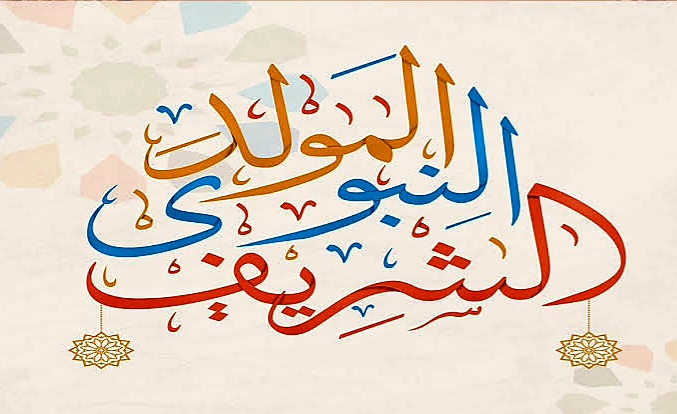 المولد
النبوى
الشريف